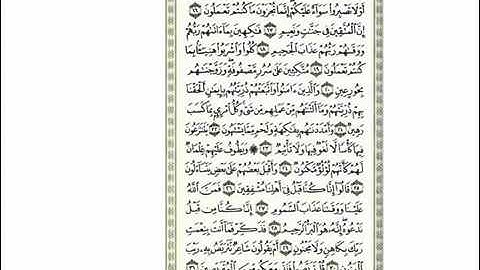 أَوْ لَا تَصْبِرُوا۟ سَوَآءٌ عَلَيْكُمْ ۖ إِنَّمَا تُجْزَوْنَ مَا كُنتُمْ تَعْمَلُونَ ١٦
إِنَّ ٱلْمُتَّقِينَ فِى جَنَّـٰتٍ وَنَعِيمٍ ١٧ فَـٰكِهِينَ بِمَآ ءَاتَىٰهُمْ رَبُّهُمْ
وَوَقَىٰهُمْ رَبُّهُمْ عَذَابَ ٱلْجَحِيمِ ١٨ كُلُوا۟ وَٱشْرَبُوا۟ هَنِيٓـًٔۢا بِمَا
كُنتُمْ تَعْمَلُونَ ١٩ مُتَّكِـِٔينَ عَلَىٰ سُرُرٍ مَّصْفُوفَةٍ ۖ وَزَوَّجْنَـٰهُم
بِحُورٍ عِينٍ ٢٠ وَٱلَّذِينَ ءَامَنُوا۟ وَٱتَّبَعَتْهُمْ ذُرِّيَّتُهُم بِإِيمَـٰنٍ أَلْحَقْنَا
بِهِمْ ذُرِّيَّتَهُمْ وَمَآ أَلَتْنَـٰهُم مِّنْ عَمَلِهِم مِّن شَىْءٍ ۚ كُلُّ ٱمْرِئٍۭ بِمَا كَسَبَ
رَهِينٌ ٢١ وَأَمْدَدْنَـٰهُم بِفَـٰكِهَةٍ وَلَحْمٍ مِّمَّا يَشْتَهُونَ ٢٢ يَتَنَـٰزَعُونَ
فِيهَا كَأْسًا لَّا لَغْوٌ فِيهَا وَلَا تَأْثِيمٌ ٢٣ ۞ وَيَطُوفُ عَلَيْهِمْ غِلْمَانٌ
لَّهُمْ كَأَنَّهُمْ لُؤْلُؤٌ مَّكْنُونٌ ٢٤ وَأَقْبَلَ بَعْضُهُمْ عَلَىٰ بَعْضٍ يَتَسَآءَلُونَ
٢٥ قَالُوٓا۟ إِنَّا كُنَّا قَبْلُ فِىٓ أَهْلِنَا مُشْفِقِينَ ٢٦ فَمَنَّ ٱللَّهُ
عَلَيْنَا وَوَقَىٰنَا عَذَابَ ٱلسَّمُومِ ٢٧ إِنَّا كُنَّا مِن قَبْلُ
نَدْعُوهُ ۖ إِنَّهُۥ هُوَ ٱلْبَرُّ ٱلرَّحِيمُ ٢٨ فَذَكِّرْ فَمَآ أَنتَ بِنِعْمَتِ
رَبِّكَ بِكَاهِنٍ وَلَا مَجْنُونٍ ٢٩ أَمْ يَقُولُونَ شَاعِرٌ نَّتَرَبَّصُ بِهِۦ رَيْبَ
ٱلْمَنُونِ ٣٠ قُلْ تَرَبَّصُوا۟ فَإِنِّى مَعَكُم مِّنَ ٱلْمُتَرَبِّصِينَ ٣١